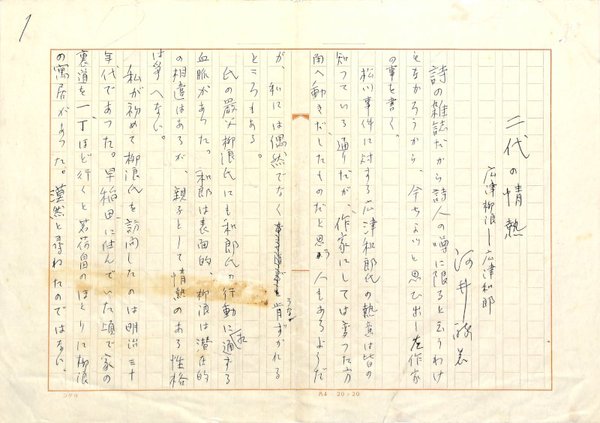 1
二代の情熱
広津柳浪―広津和郎
河井酔茗
詩の雑誌だから詩人の噂に限ると云うわけ
ともなかろうから、今ちょいと思ひ出した作家
の事を書く。
松川事件に対する広津和郎氏の熱意は皆の
知っている通りだが、作家にしては変った方
面へ動きだしたものだと思う人もあるようだ
が、私には偶然でなく肯ずかれる
ところもある。
氏の厳父柳浪氏にも和郎氏の行動に通ずる
血脈があった。和郎は表面的、柳浪は潜在的
の相違はあるが、親子として情熱のある性格
は争へない。
私が初めて柳浪氏を訪問したのは明治三十
年代であった。早稲田に住んでいた頃で家の
裏道を一丁ほど行くと茗荷畠のほとりに柳浪
の寓居があった。漠然と尋ねたのではない、
20×20